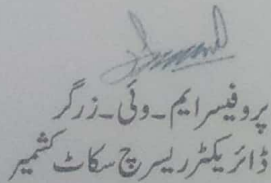 پروفیسر ایم۔وئی۔زرگر
ڈائریکٹر ریسرچ سکاٹ کشمیر